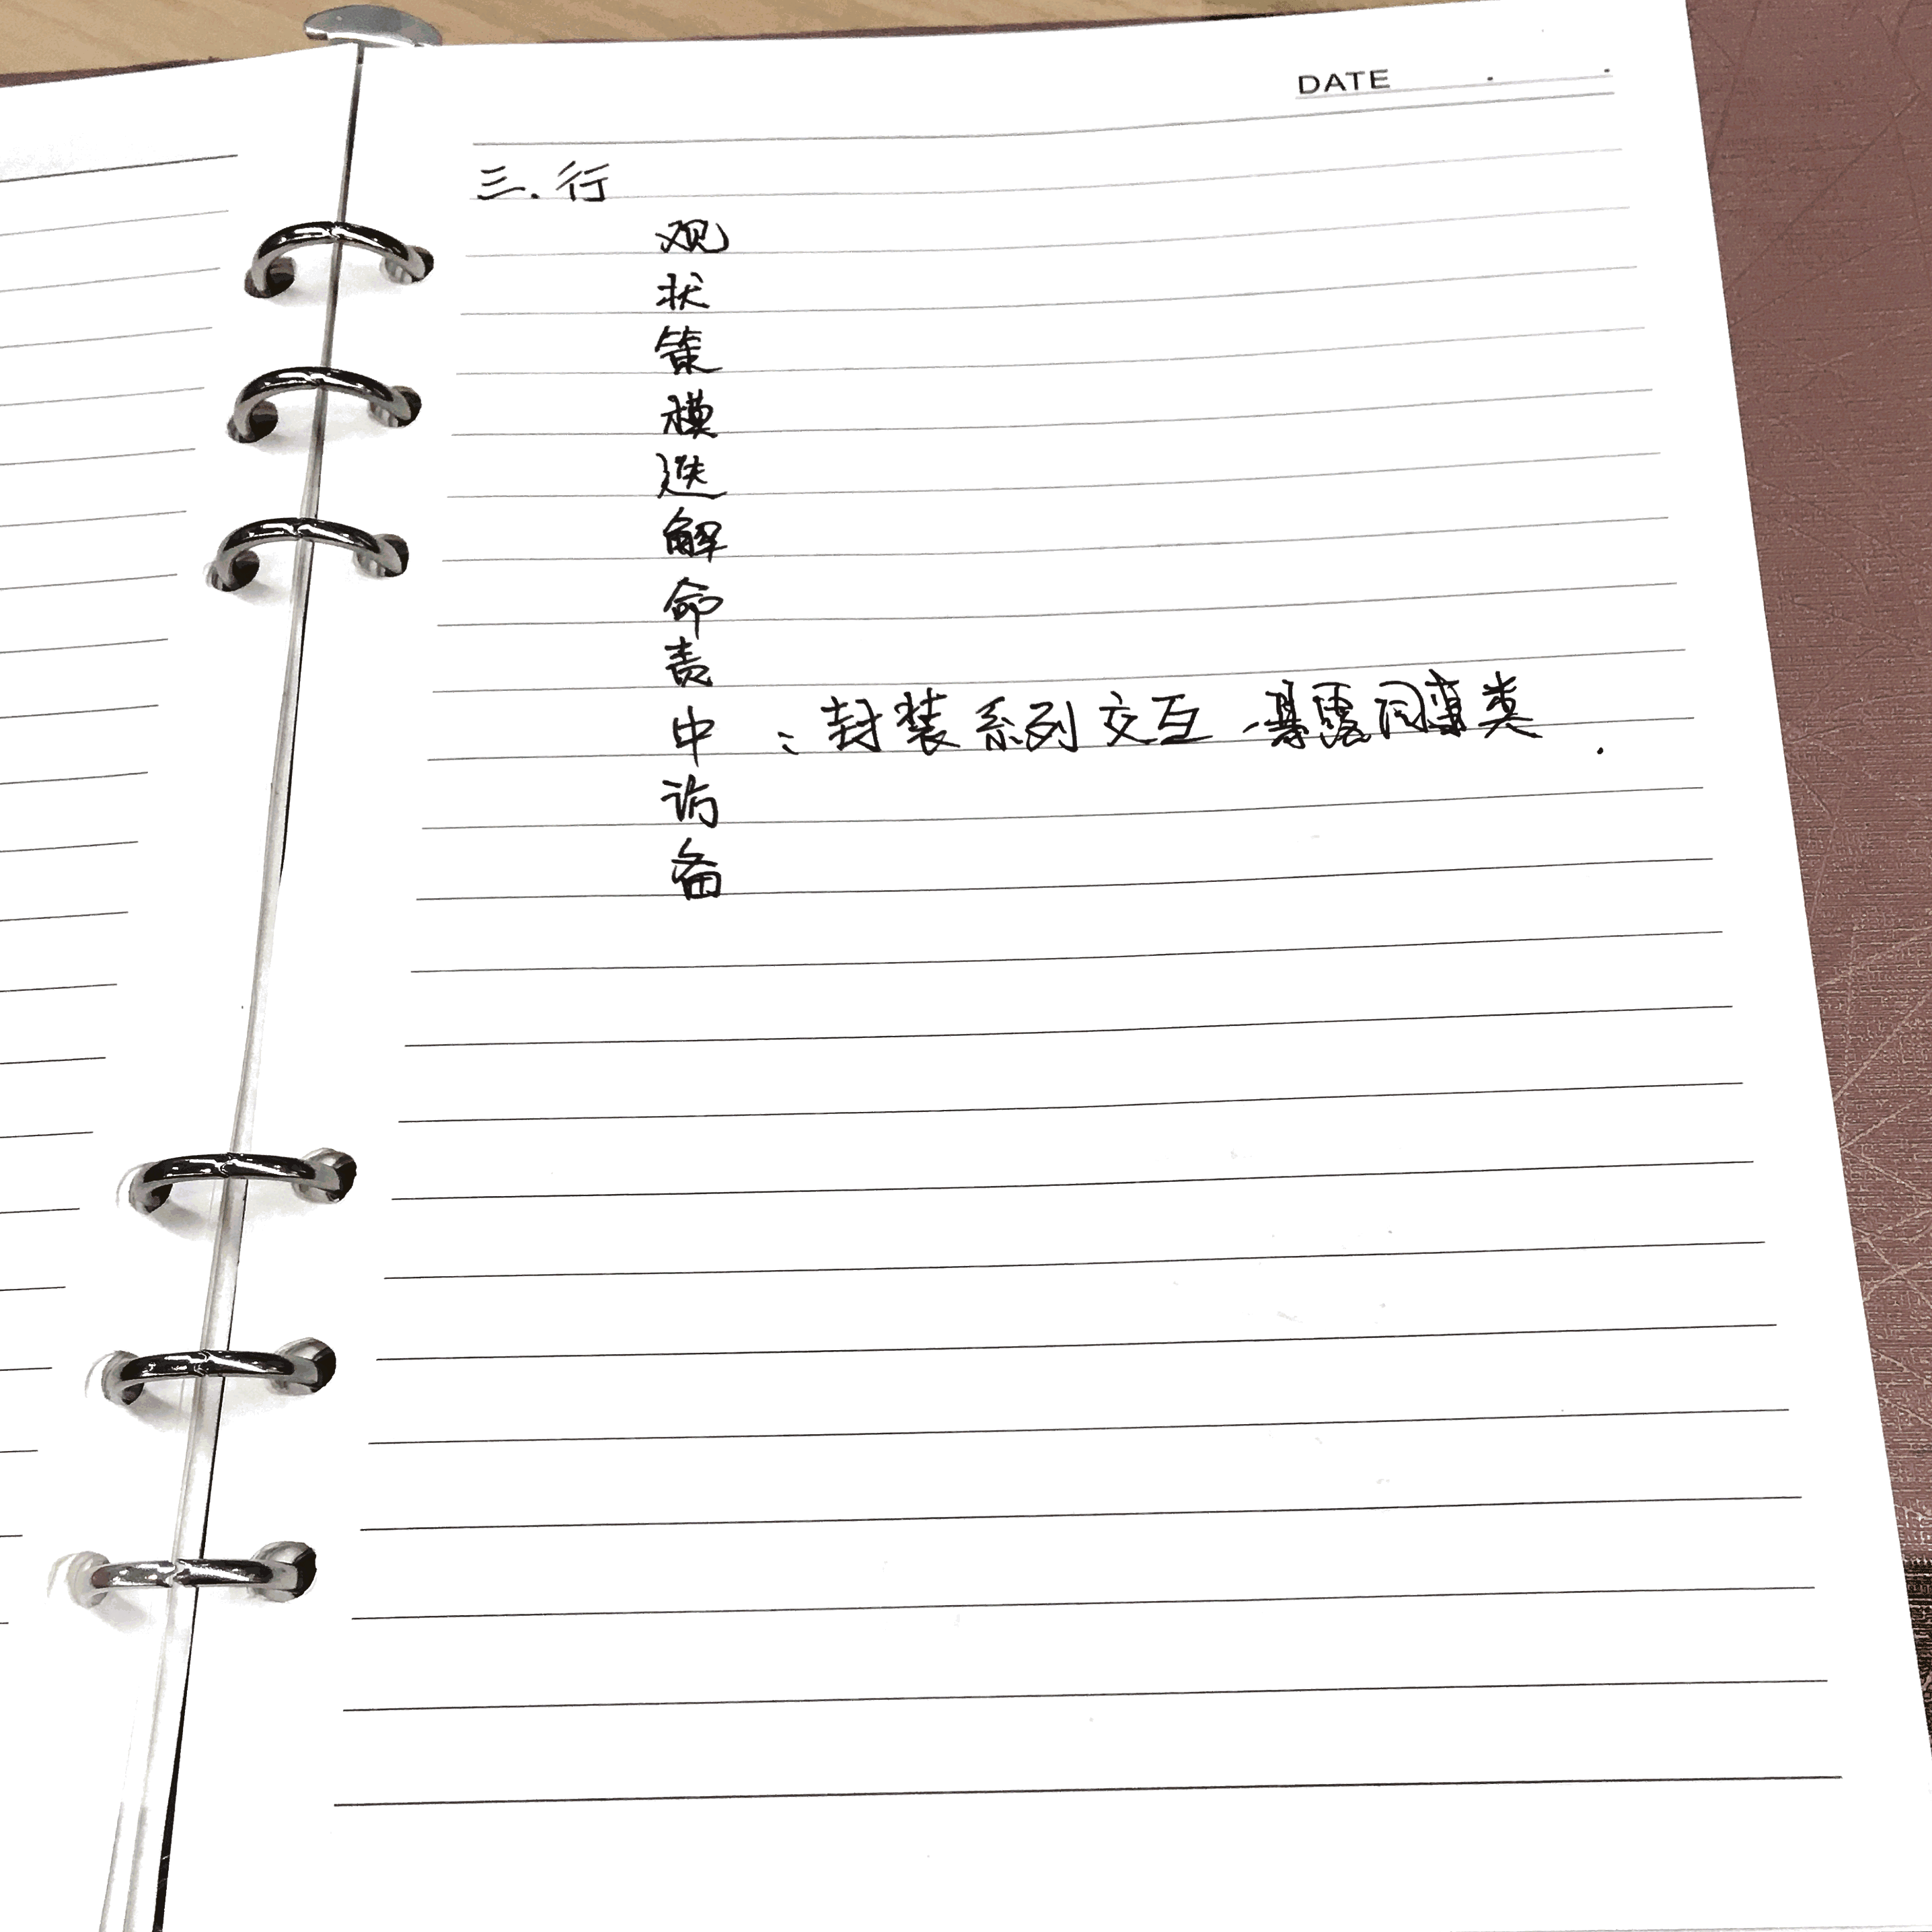 DATE . .
三.行
观
状
策
模
迭
解
命
责
中：封装系列交互，暴露同事类.
访
备